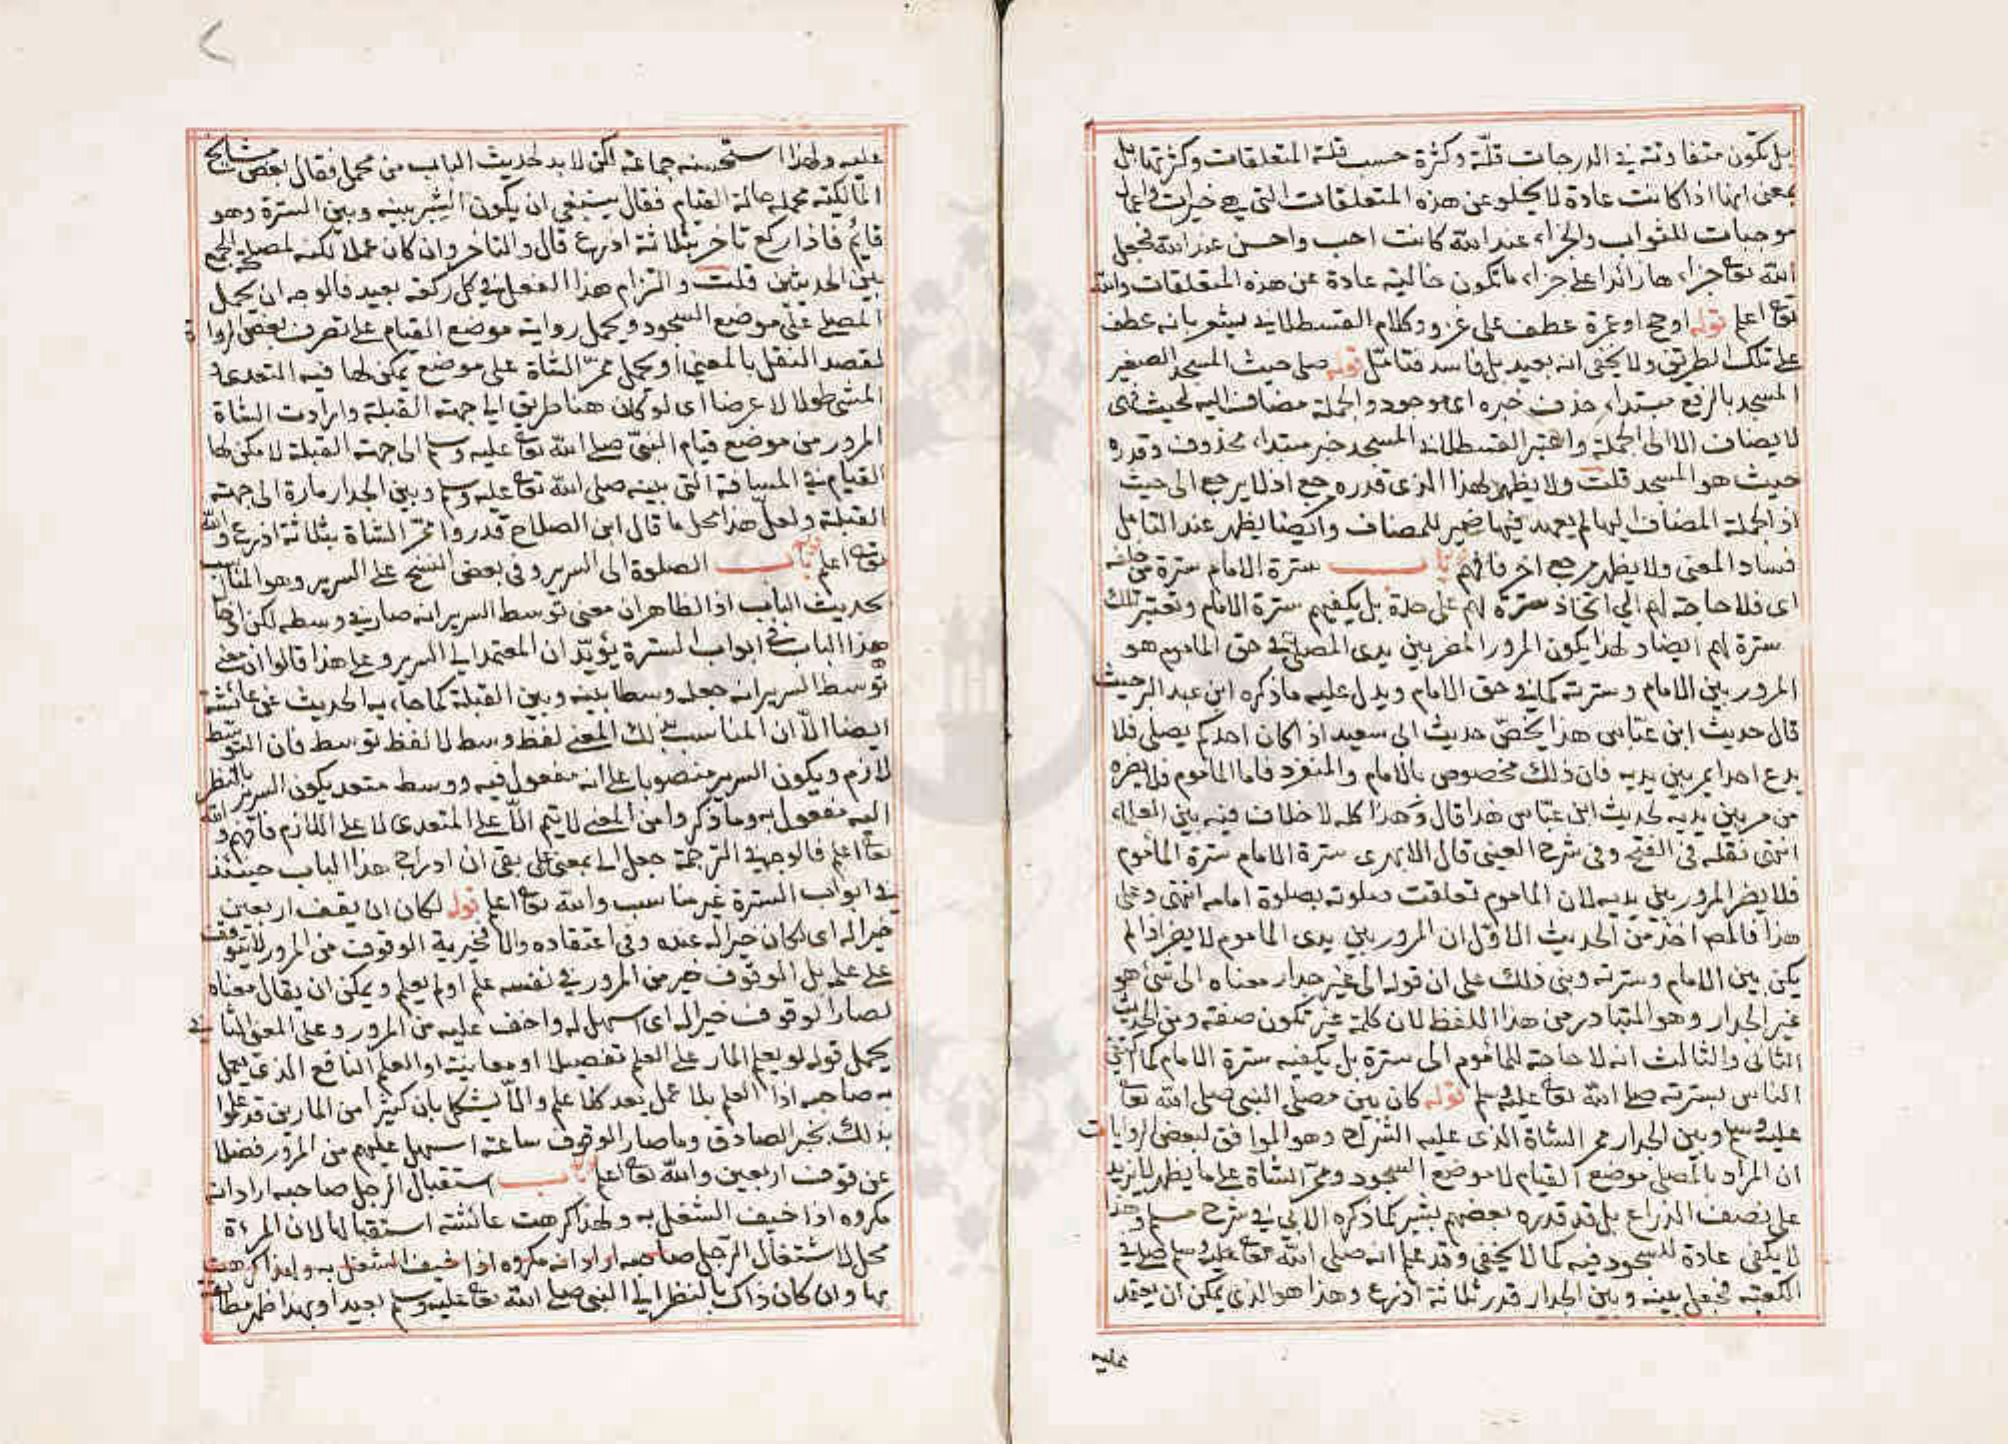 بل تكون متفاوتة في الدرجات قلة وكثرة حسب قلة المتعلقات وكثرتها بل
بمعنى انها اذا كانت عادة لا يخلو عن هذه المتعلقات التي هي خيرات واعمال
موجبات للثواب والجزاء عند الله كانت احب واحسن عند الله فجعل
الله تعالى جزاءها زائدا على جزاء ما تكون خالية عادة عن هذه المتعلقات والله
تعالى اعلم قوله او حج او عمرة عطف على غزو وكلام القسطلاني يشعر بانه عطف
على تلك الطريق ولا يخفى انه بعيد بل فاسد فتامل قوله صلى حيث المسجد الصغير
المسجد بالرفع مبتداء حذف خبره اى موجود والجملة مضاف اليه لحيث فهى
لا يضاف الا الى الجملة واعتبر القسطلاني المسجد خبر مبتداء محذوف وقدره
حيث هو المسجد قلت ولا يظهر لهذا الذى قدره مرجع اذ لا يرجع الى حيث
اذ الجملة المضاف اليها لم يعهد فيها ضمير للمضاف وايضا يظهر عند التامل
فساد المعنى ولا يظهر مرجع اخر فافهم باب سترة الامام سترة من خلفه
اى فلا حاجة لهم الى اتخاذ سترة لهم على حدة بل يكفيهم سترة الامام وتعتبر تلك
سترة لهم ايضا ولهذا يكون المرور المضر بين يدى المصلى في حق الماموم هو
المرور بين الامام وسترته كما في حق الامام ويدل عليه ما ذكره ابن عبد البر حيث
قال حديث ابن عباس هذا يخص حديث ابى سعيد اذا كان احدكم يصلى فلا
يدع احدا يمر بين يديه فان ذلك مخصوص بالامام والمنفرد فاما الماموم فلا يضره
من مر بين يديه لحديث ابن عباس هذا قال وهذا كله لا خلاف فيه بين العلماء
انتهى نقله في الفتح وفى شرح العينى قال الابهرى سترة الامام سترة الماموم
فلا يضر المرور بين يديه لان الماموم تعلقت صلوته بصلوة امامه انتهى وعلى
هذا فالمص اخذ من الحديث الاول ان المرور بين يدى الماموم لا يضر اذا لم
يكن بين الامام وسترته وبنى ذلك على ان قوله الى غير جدار معناه الى شئ هو
غير الجدار وهو المتبادر من هذا اللفظ لان كلمة غير تكون صفة ومن الحديث
الثانى والثالث انه لا حاجة للماموم الى سترة بل يكفيه سترة الامام كما اكتفى
الناس بسترته صلى الله تعالى عليه وسلم قوله كان بين مصلى النبى صلى الله تعالى
عليه وسلم وبين الجدار ممر الشاة الذى عليه الشراح وهو الموافق لبعض الروايات
ان المراد بالمصلى موضع القيام لا موضع السجود وممر الشاة على ما يظهر لا يزيد
على نصف الذراع بل قد قدره بعضهم بشبر كما ذكره الابى في شرح مسلم وهذا
لا يكفى عادة للسجود فيه كما لا يخفى وقد علم انه صلى الله تعالى عليه وسلم صلى في
الكعبة فجعل بينه وبين الجدار قدر ثلاثة اذرع وهذا هو الذى يمكن ان يعتمد
عليه
عليه ولهذا استحسنه جماعة لكن لا بد لحديث الباب من محمل فقال بعض مشايخ
المالكية محمله حالة القيام فقال ينبغى ان يكون الشبر بينه وبين السترة وهو
قائم فاذا ركع تاخر بثلاثة اذرع قال والتاخر وان كان عملا لكنه لمصلحة الجمع
بين الحديثين قلت والتزام هذا الفعل في كل ركعة بعيد فالوجه ان يحمل
المصلى على موضع السجود ويحمل رواية موضع القيام على تصرف بعض الرواة
لقصد النقل بالمعنى او يحمل ممر الشاة على موضع يمكن لها فيه المتعدى
المشى طولا لا عرضا اى لو كان هنا طريق الى جهة القبلة وارادت الشاة
المرور من موضع قيام النبى صلى الله تعالى عليه وسلم الى جهة القبلة لامكن لها
القيام في المسافة التى بينه صلى الله تعالى عليه وسلم وبين الجدار مارة الى جهة
القبلة ولعل هذا محمل ما قال ابن الصلاح قدروا ممر الشاة بثلاثة اذرع والله
تعالى اعلم باب الصلوة الى السرير وفى بعض النسخ على السرير وهو المناسب
بحديث الباب اذ الظاهر ان معنى توسط السرير انه صار في وسطه لكن ادخال
هذا الباب في ابواب السترة يؤيد ان المعتمد الى السرير وعلى هذا قالوا ان معنى
توسط السرير انه جعله وسطا بينه وبين القبلة كما جاء به الحديث عن عائشة
ايضا الا ان المناسب بذلك المعنى لفظ وسط لا لفظ توسط فان التوسط
لازم ويكون السرير منصوبا على انه مفعول فيه ووسط متعد يكون السرير بالنظر
اليه مفعول به وما ذكروا من المعنى لا يتم الا على المتعدى لا على اللازم فافهم والله
تعالى اعلم فالوجه في الترجمة جعل الى بمعنى على بقى ان ادراج هذا الباب حينئذ
في ابواب السترة غير مناسب والله تعالى اعلم قوله لكان ان يقف اربعين
خيرا له اى لكان خيرا له عنده وفى اعتقاده والا فخيرية الوقوف من المرور لا يتوقف
على علمه بل الوقوف خير من المرور في نفسه علم او لم يعلم ويمكن ان يقال معناه
لصار الوقوف خيرا له اى اسهل له واخف عليه من المرور وعلى المعنى الثانى
يحمل قوله لو يعلم المار على العلم تفصيلا او معاينة او العلم النافع الذى يعمل
به صاحبه اذ العلم بلا عمل يعد كلا علم والا يشكل بان كثيرا من المارين قد علموا
بذلك بخبر الصادق وما صار الوقوف ساعة اسهل عليهم من المرور فضلا
عن قوف اربعين والله تعالى اعلم باب استقبال الرجل صاحبه اراد انه
مكروه اذا خيف الشغل به ولهذا كرهت عائشة استقبالها لان المرءة
محل لاشتغال الرجل صاحبه اراد انه مكروه اذا خيف الشغل به ولهذا كرهت
بها وان كان ذاك بالنظر الى النبى صلى الله تعالى عليه وسلم بعيدا وبهذا ظهر مطابقة